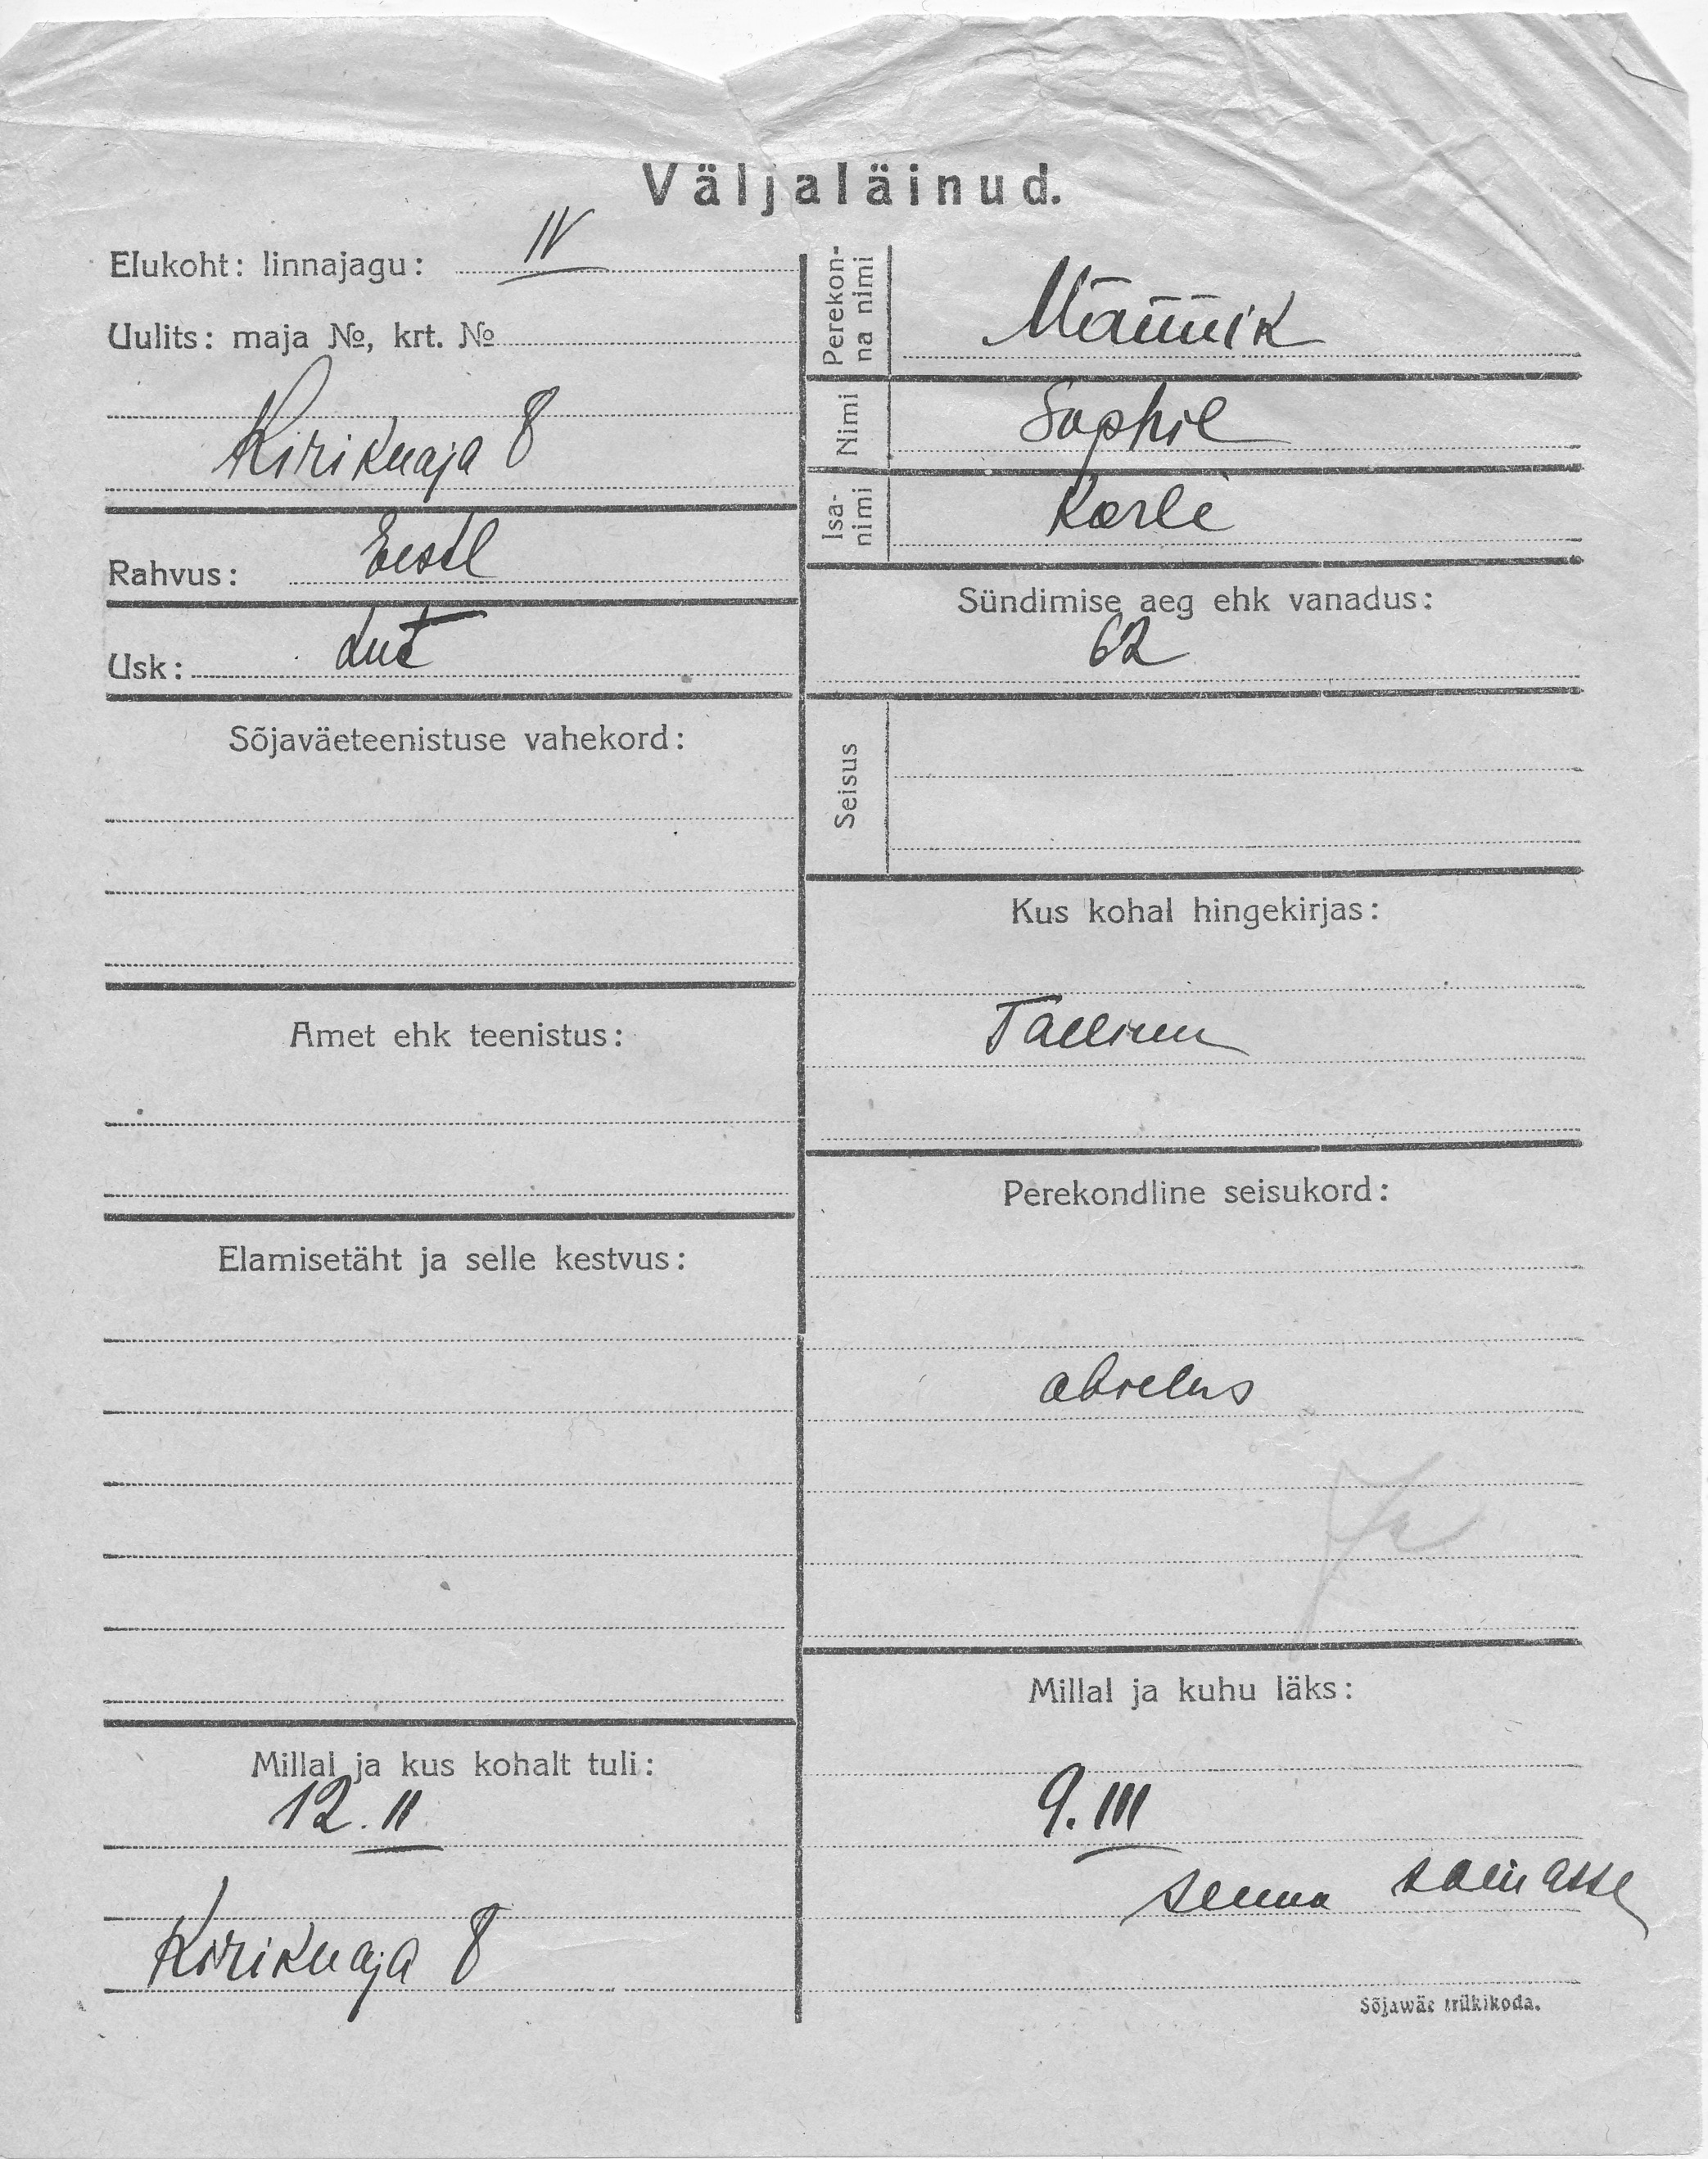 Väljaläinud.
Elukoht: linnajagu: IV
Uulits: maja №, krt. №
Kirikuaja 8
Rahvus: Eestl
Usk: Lut
Sõjaväeteenistuse vahekord:
Amet ehk teenistus:
Elamisetäht ja selle kestvus:
Millal ja kus kohalt tuli:
12. II
Kirikuaja 8
Perekon-
na nimi
Männik
Nimi
Sophie
Isa-
nimi
Karli
Sündimise aeg ehk vanadus:
62
Seisus
Kus kohal hingekirjas:
Tallinn
Perekondline seisukord:
abielus
Millal ja kuhu läks:
9. III
senna samasse
Sõjawäe trükikoda.